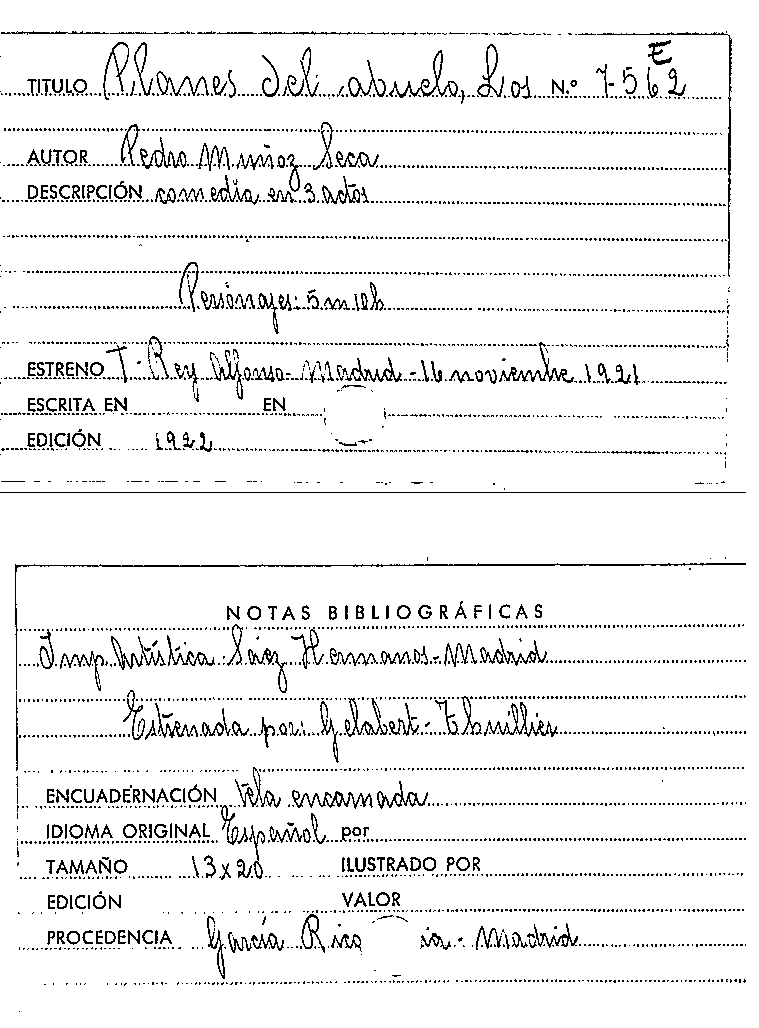 E
TITULO Planes del abuelo, Los N.º 7-562
AUTOR Pedro Muñoz Seca
DESCRIPCIÓN comedia en 3 actos
Personajes: 5m 10h
ESTRENO T. Rey Alfonso- Madrid -16 noviembre 1921
ESCRITA EN EN
EDICIÓN 1922
NOTAS BIBLIOGRÁFICAS
Imp. Artística. Sáez Hermanos- Madrid
Estrenada por: Gelabert- Thuillier
ENCUADERNACIÓN tela encarnada
IDIOMA ORIGINAL Español por
TAMAÑO 13x20 ILUSTRADO POR
EDICIÓN VALOR
PROCEDENCIA García Rico ia.- Madrid